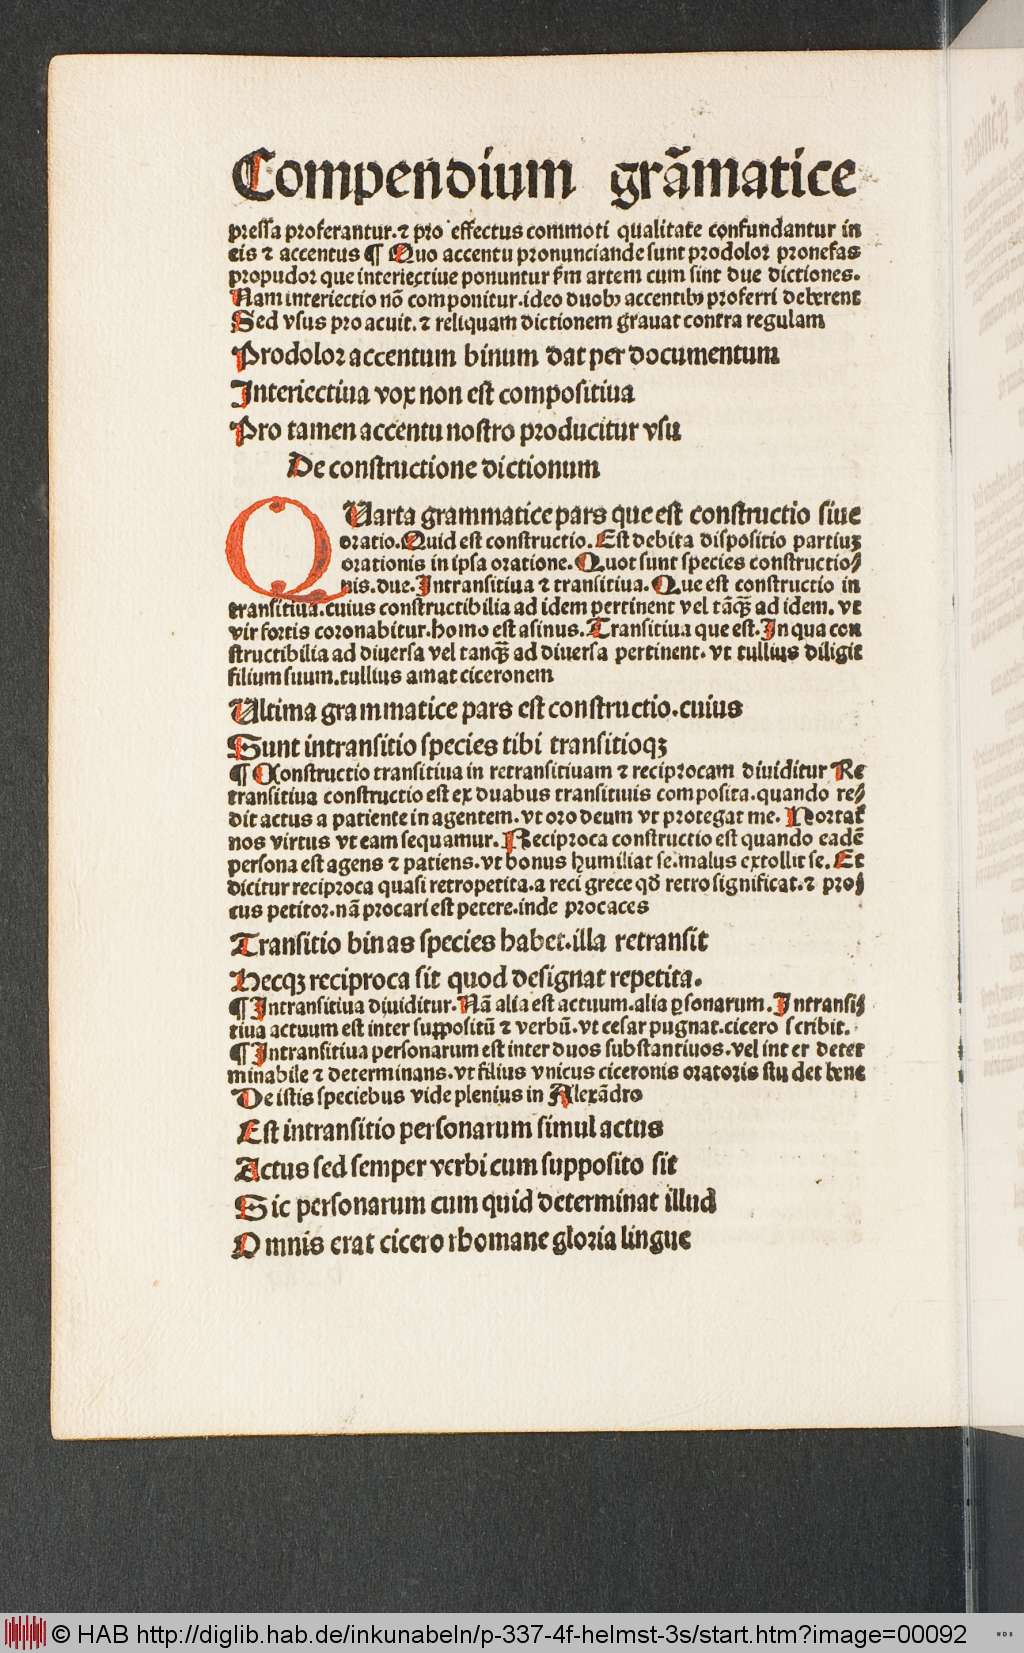 Compendium grãmatice
pressa proferantur.⁊ pro effectus commoti qualitate confundantur in
eis ⁊ accentus ¶ Quo accentu pronunciande sunt prodolor pronefas
propudor que interiectiue ponuntur fm artem cum sint due dictiones.
Nam interiectio nõ componitur.ideo duobꝫ accentibꝫ proferri deberent
Sed vsus pro acuit.⁊ reliquam dictionem grauat contra regulam
Prodolor accentum binum dat per documentum
Interiectiua vox non est compositiua
Pro tamen accentu nostro producitur vsu
De constructione dictionum
QUarta grammatice pars que est constructio siue
oratio.Quid est constructio.Est debita dispositio partiuꝫ
orationis in ipsa oratione.Quot sunt species constructio⸗
nis.due.Intransitiua ⁊ transitiua.Que est constructio in
transitiua.cuius constructibilia ad idem pertinent vel tãqꝫ ad idem.vt
vir fortis coronabitur.homo est asinus.Transitiua que est.In qua con
structibilia ad diuersa vel tanqꝫ ad diuersa pertinent.vt tullius diligit
filium suum.tullius amat ciceronem
Ultima grammatice pars est constructio.cuius
Sunt intransitio species tibi transitioqꝫ
¶ Constructio transitiua in retransitiuam ⁊ reciprocam diuiditur Re
transitiua constructio est ex duabus transitiuis composita.quando re⸗
dit actus a patiente in agentem.vt oro deum vt protegat me. Hortat᷑
nos virtus vt eam sequamur.Reciproca constructio est quando eadẽ
persona est agens ⁊ patiens.vt bonus humiliat se.malus extollit se.Et
dicitur reciproca quasi retropetita.a reci grece qđ retro significat.⁊ pro⸗
cus petitor.nã procari est petere.inde procaces
Transitio binas species habet.illa retransit
Hecqꝫ reciproca sit quod designat repetita.
¶ Intransitiua diuiditur.Nã alia est actuum.alia ꝑsonarum.Intransi⸗
tiua actuum est inter suppositũ ⁊ verbũ.vt cesar pugnat.cicero scribit.
¶ Intransitiua personarum est inter duos substantiuos.vel inter deter
minabile ⁊ determinans.vt filius vnicus ciceronis oratoris studet bene
De istis speciebus vide plenius in Alexãdro
Est intransitio personarum simul actus
Actus sed semper verbi cum supposito sit
Sic personarum cum quid determinat illud
Omnis erat cicero rhomane gloria lingue
© HAB http://diglib.hab.de/inkunabeln/p-337-4f-helmst-3s/start.htm?image=00092